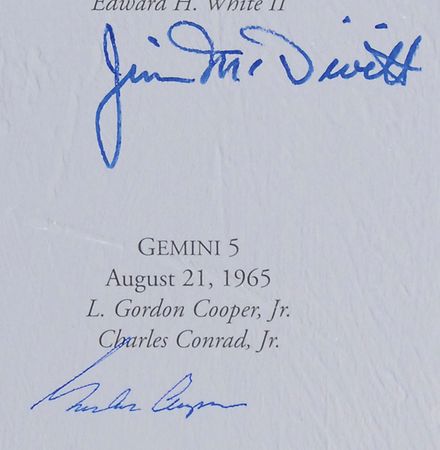 Edward H. White II
Jim McDivitt
GEMINI 5
August 21, 1965
L. Gordon Cooper, Jr.
Charles Conrad, Jr.